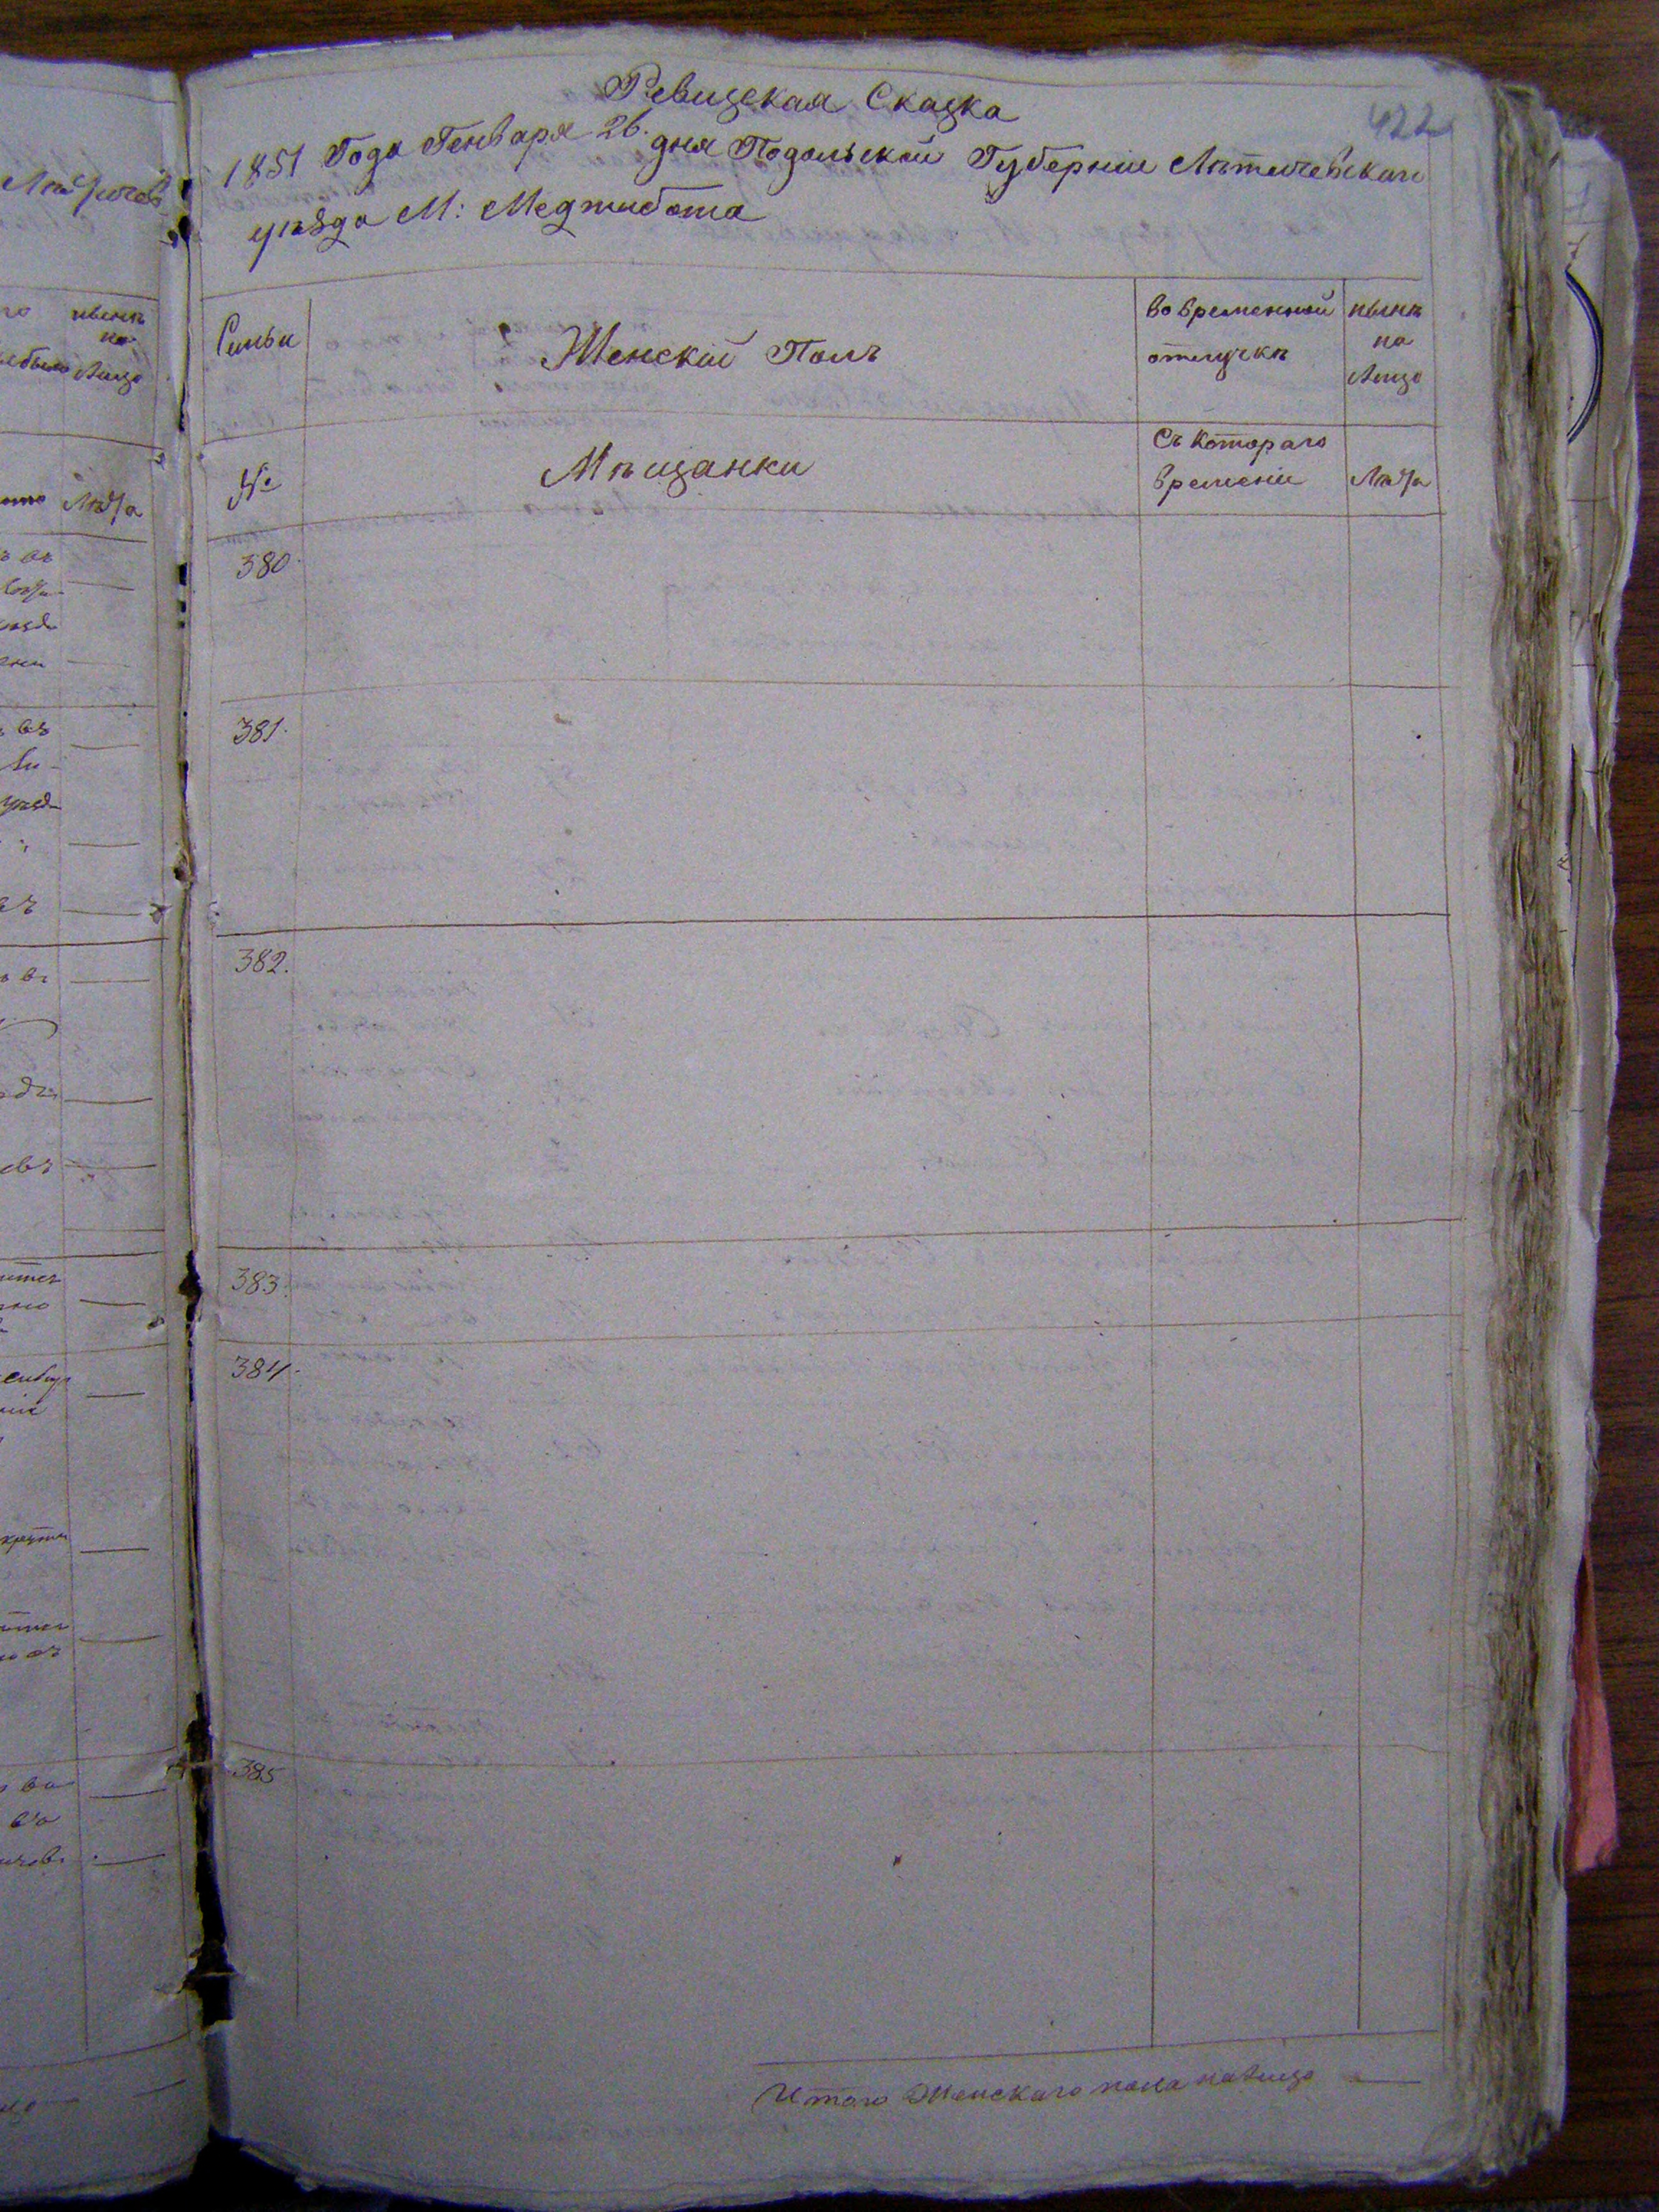 422
Ревизская Сказка
1851 Года Генваря 26. дня Подольской Губернии Лѣтичевскаго
уѣзда М: Меджибожа
Семьи
Женскій Полъ
во временной
отлучкѣ
нынѣ
на
Лицо
№
Мѣщанки
Съ котораго
времени
Лѣта
380.
381.
382.
383.
384.
385
Итого Женскаго пола на лицо —
нынѣ
на
Лицо
Лѣта